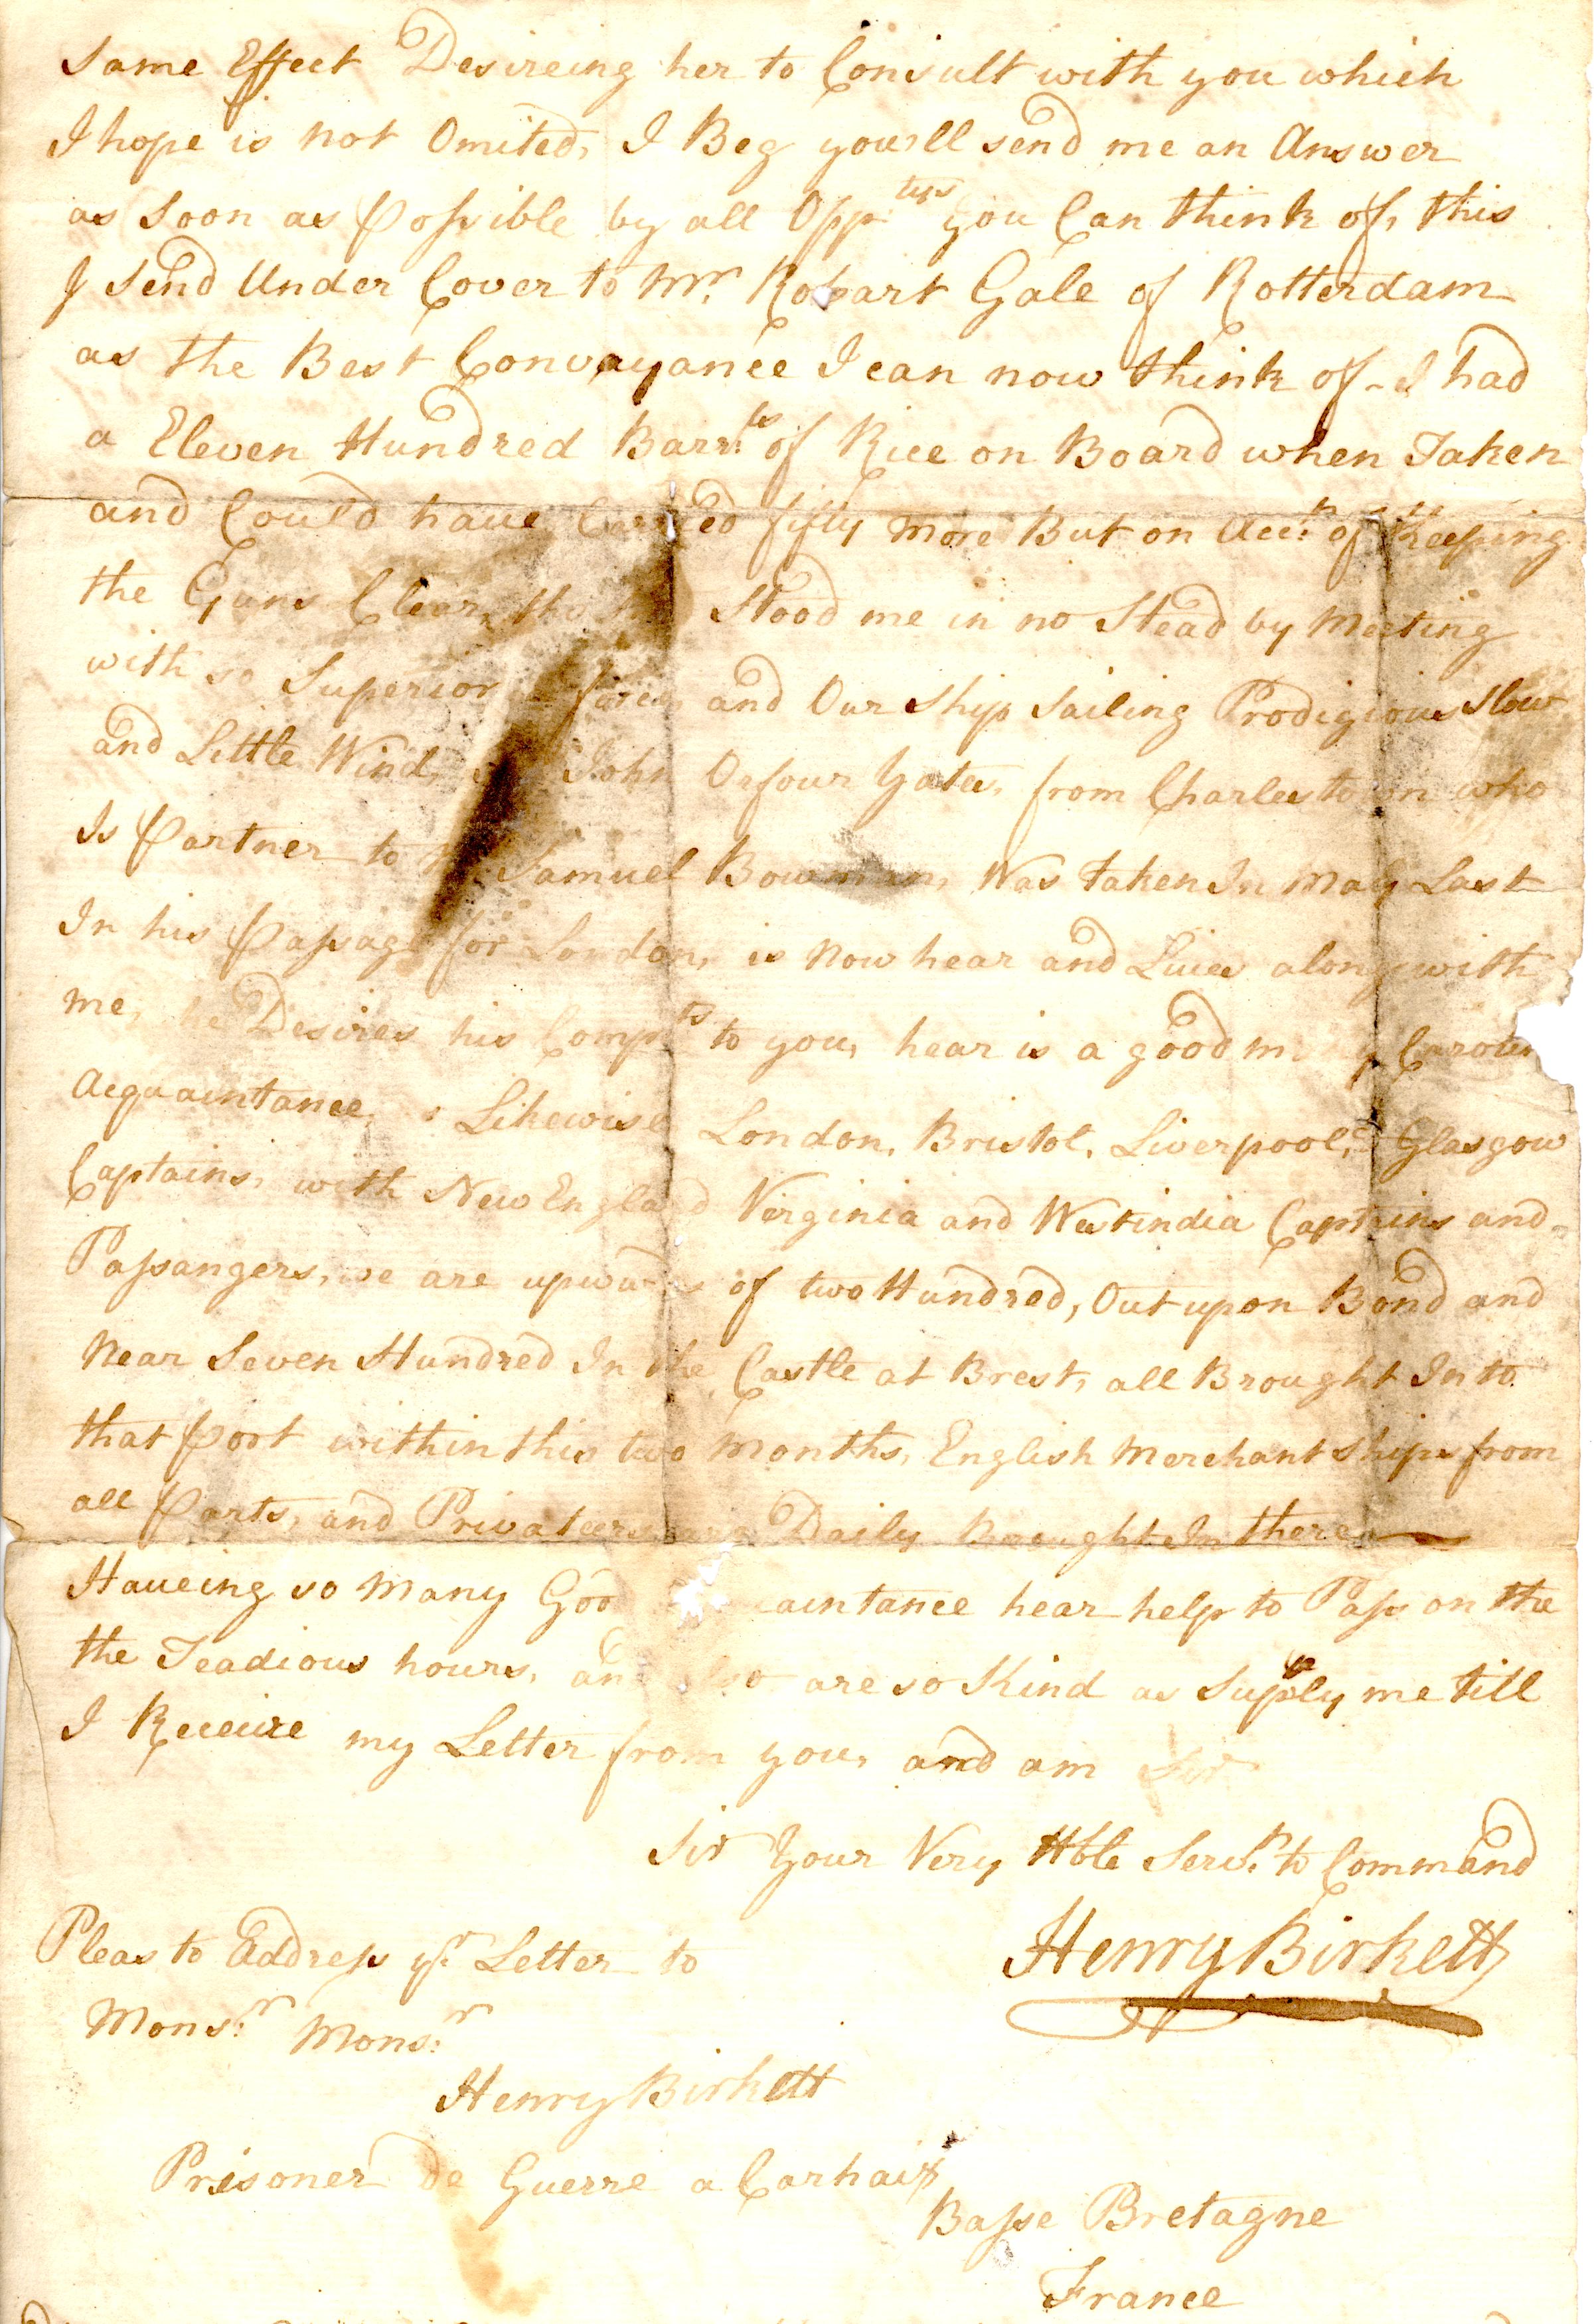 Same Effect Desireing her to Consult with you which
I hope is not Omited, I Beg you'll send me an Answer
as Soon as Possible by all Opp.tys you Can think of, this
I Send Under Cover to Mr. Robart Gale of Rotterdam
as the Best Convayance I can now think of - I had
a Eleven Hundred Barr.ls of Rice on Board when Taken
and Could have Carried fifty more But on Acc.t of Keeping
the Guns Clear, tho Stood me in no Stead by Meeting
with so Superior force, and Our Ship Sailing Prodigious Slow
and Little Wind, John Orfour Yates, from Charlestown who
Is Partner to Mr Samuel Bowman, Was taken In May Last
In his Passage for London, is Now hear and Lives along with
me, he Desires his Comp.ts to you, hear is a good many
Acquaintance, Likewise London, Bristol, Liverpool, Glasgow
Captains, with New England Virginia and Westindia Captains and
Passangers, we are upwards of two Hundred, Out upon Bond and
Near Seven Hundred In the Castle at Brest, all Brought Into
that Port within this two Months, English Merchant Ships from
all Parts, and Privateers are Daily Brought In there
Haueing so Many aintance hear help to Pass on the
the Teadious hours, and also are so Kind as Supply me till
I Receive my Letter from you, and am Sir
Sir Your Very Hble Serv.t to Command
Henry Birkett
Pleas to Address y.r Letter to
Mons.r Mons.r
Henry Birkett
Prisoner de Guerre a Carhaix
Basse Bretagne
France